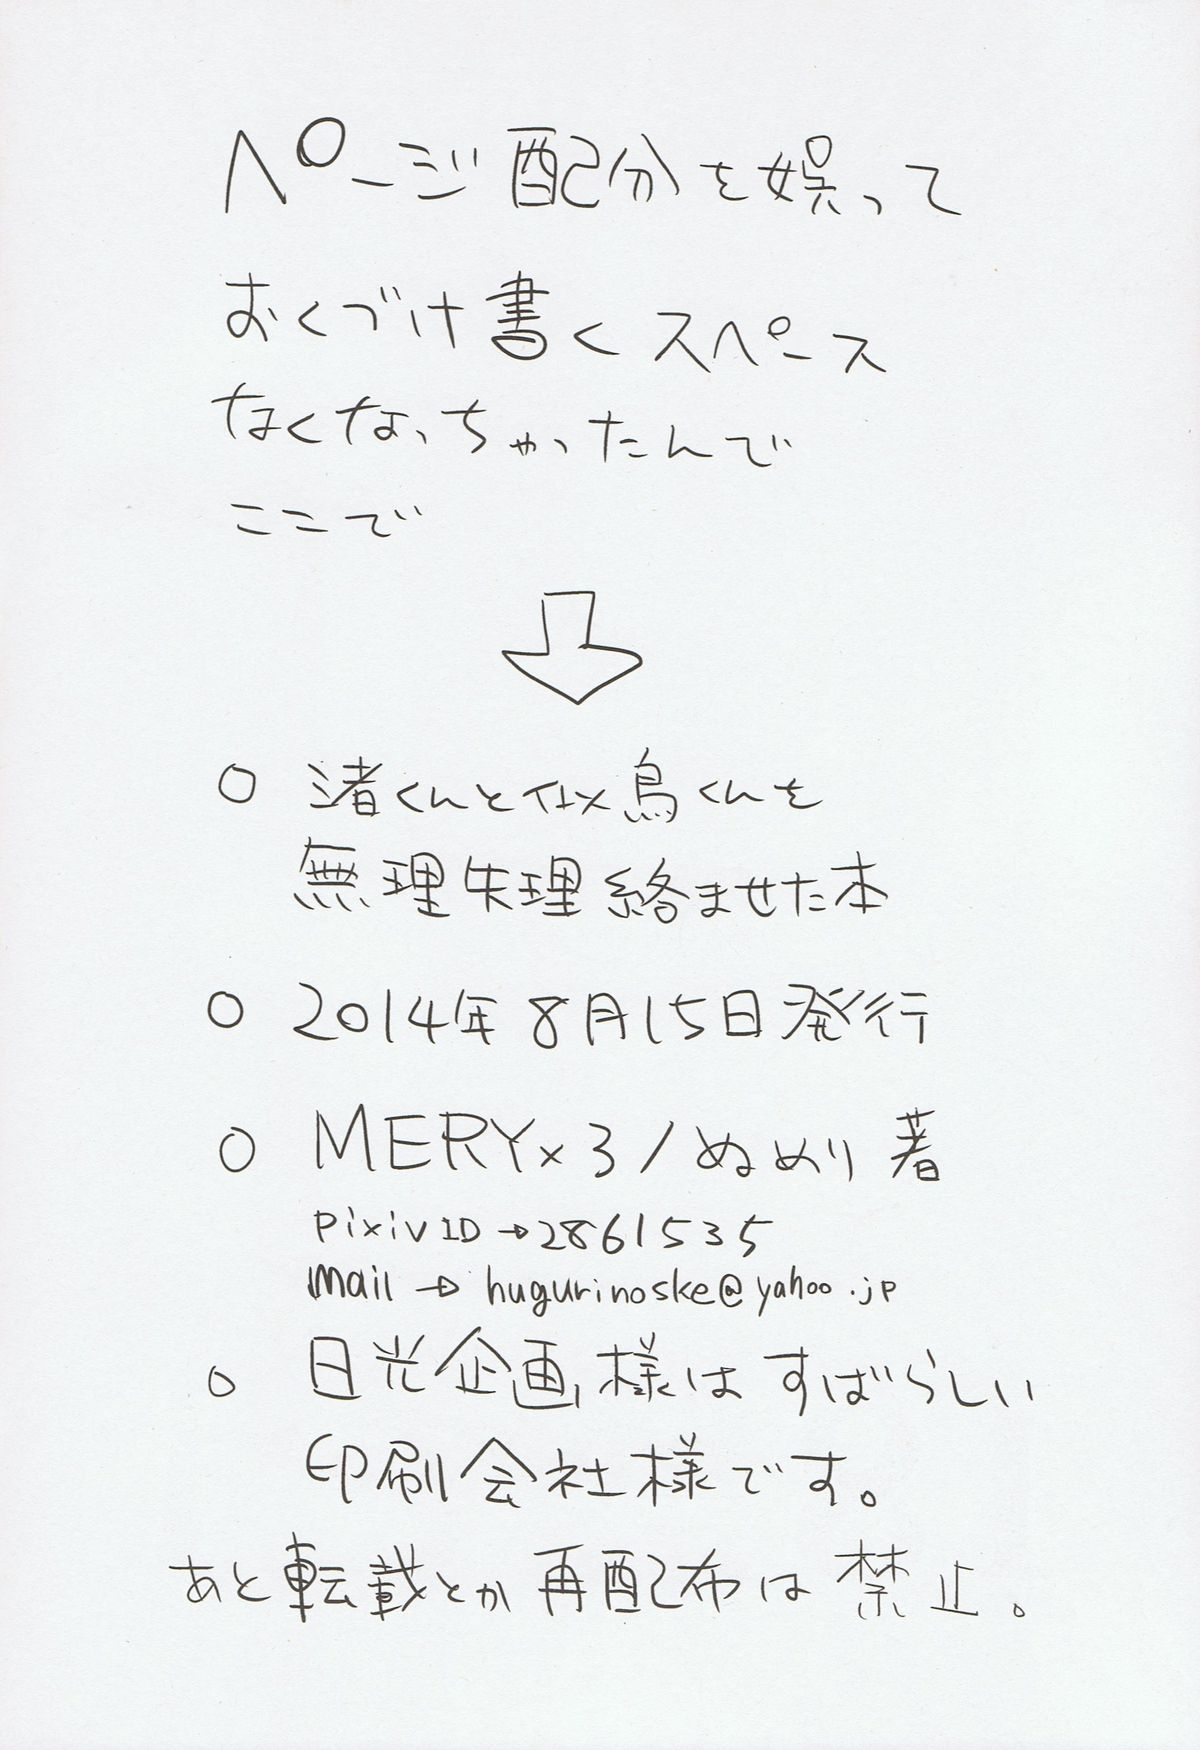 ページ配分を娯って
おくづけ書くスペース
なくなっちゃったんで
ここで
○ 渚くんと似鳥くんを
無理失理絡ませた本
○ 2014年8月15日発行
○ MERY×3/ぬめり著
pixivID→2861535
mail→hugurinoske@yahoo.jp
○ 日光企画様はすばらしい
印刷会社様です。
あと転載とか再配布は禁止。